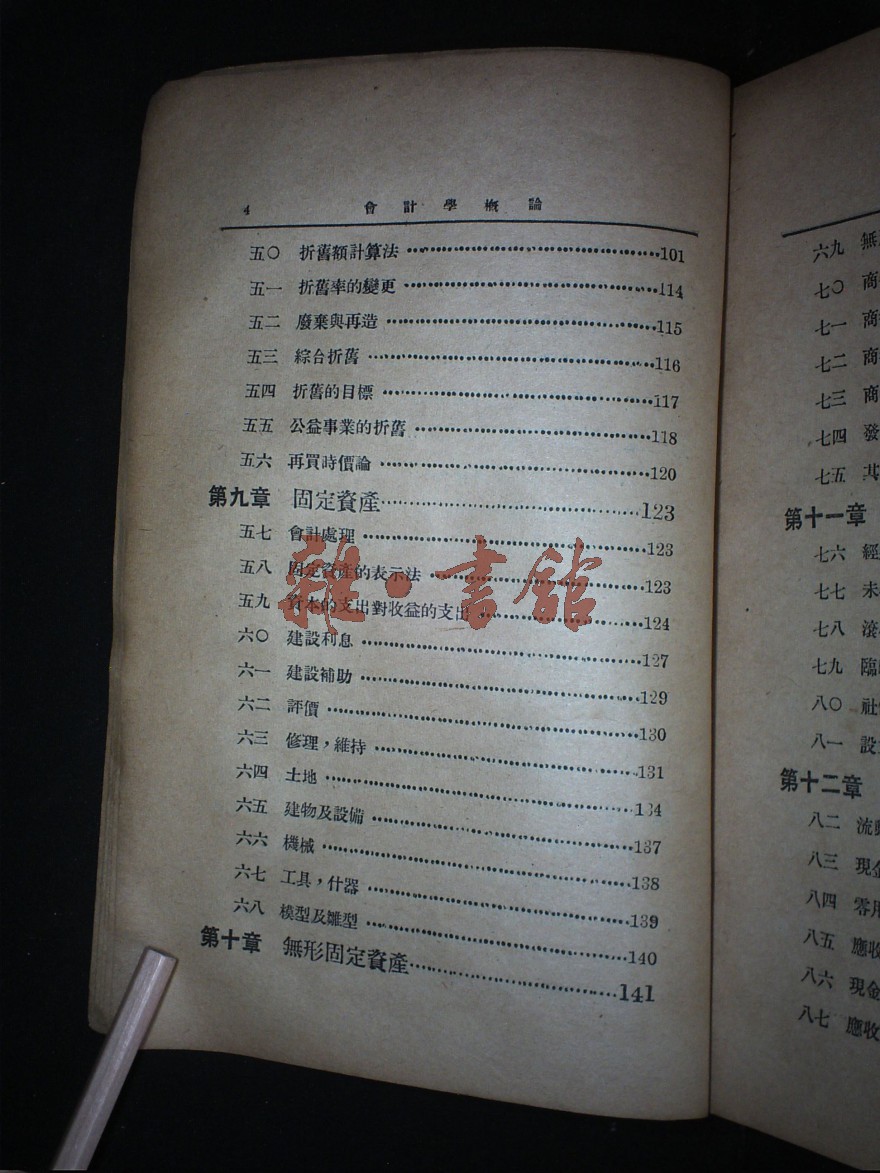 4 會計學概論
五〇 折舊額計算法 101
五一 折舊率的變更 114
五二 廢棄與再造 115
五三 綜合折舊 116
五四 折舊的目標 117
五五 公益事業的折舊 118
五六 再買時價論 120
第九章 固定資產 123
五七 會計處理 123
五八 固定資產的表示法 123
五九 資本的支出對收益的支出 124
六〇 建設利息 127
六一 建設補助 129
六二 評價 130
六三 修理，維持 131
六四 土地 134
六五 建物及設備 137
六六 機械 138
六七 工具，什器 139
六八 模型及雛型 140
第十章 無形固定資產 141
雜·書館
六九 無
七〇 商
七一 商
七二 商
七三 商
七四 發
七五 其
第十一章
七六 經
七七 未
七八 滾
七九 臨
八〇 社
八一 設
第十二章
八二 流動
八三 現金
八四 零用
八五 應收
八六 現金
八七 應收